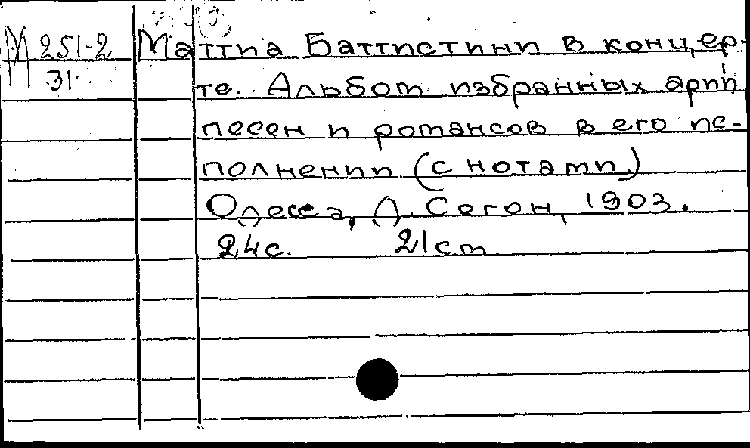 М 251-2
31
Маттиа Баттистини в концер-
те. Альбом избранных арий
песен и романсов в его ис-
полнении (с нотами)
Одесса, Л. Сегон, 1903.
24с. 21см